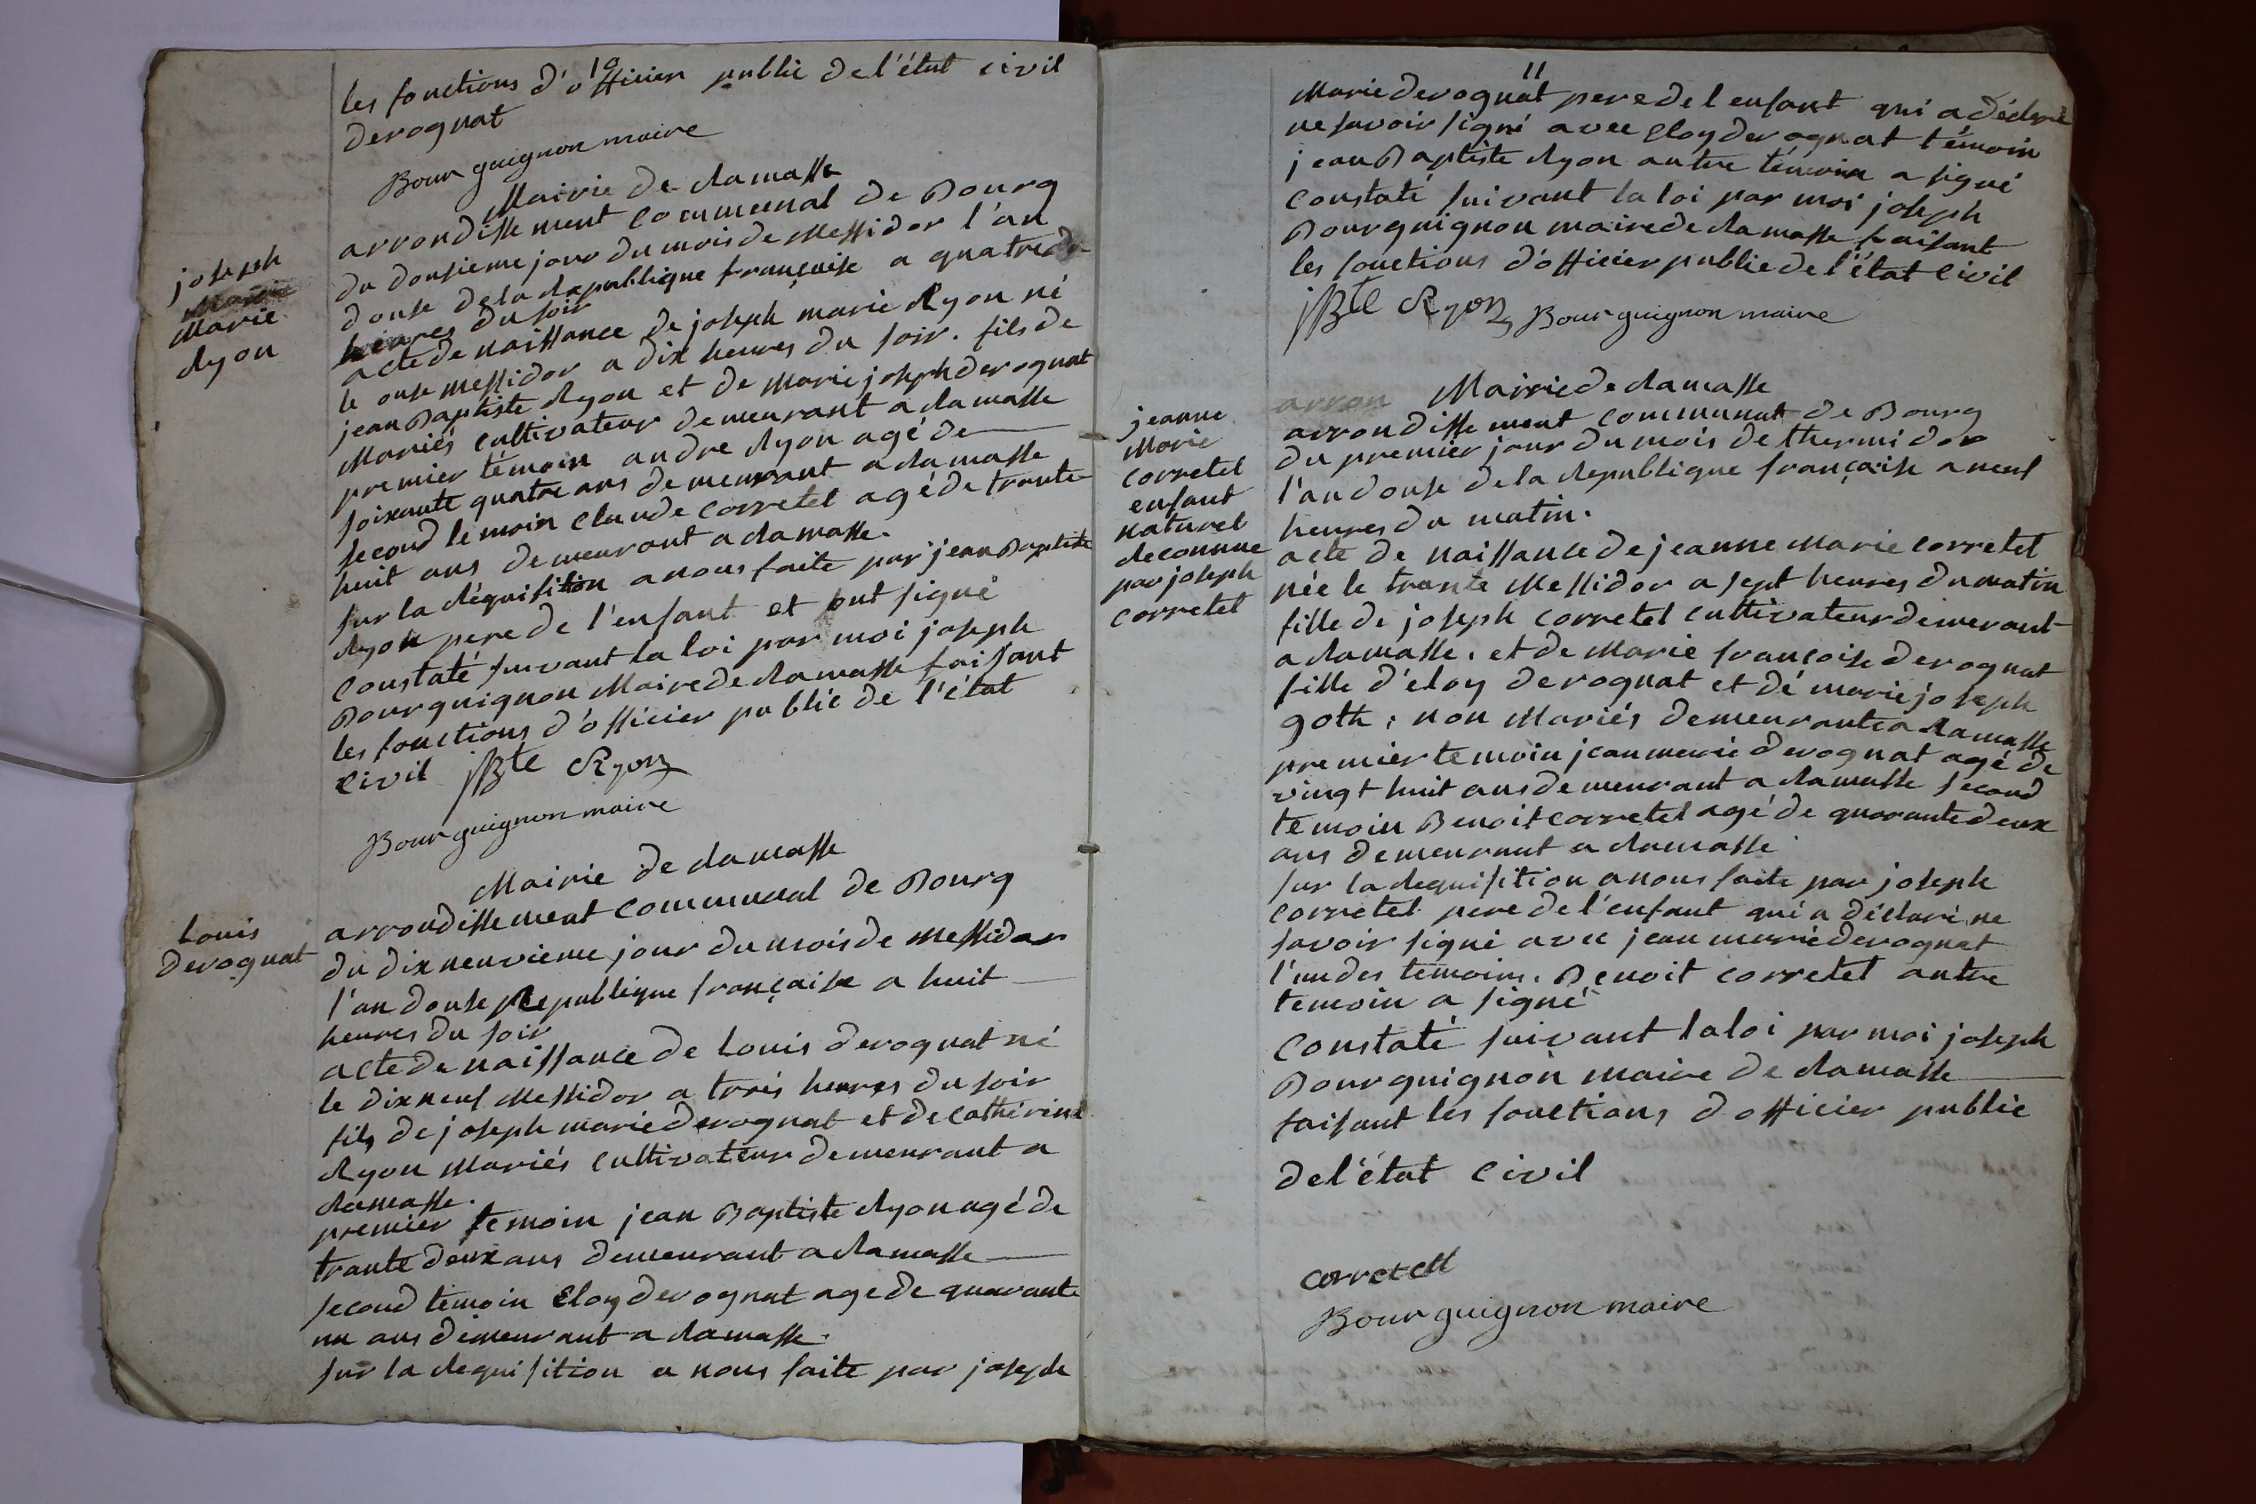 10
les fonctions d'officier public de l'état civil
derognat
Bourguignon maire
Mairie de Ramasse
arrondissement communal de Bourg
du dousieme jour du mois de Messidor l'an
douse de la Republique française a quatre
heures du soir
joseph
Marie
Ryon
acte de naissance de joseph marie Ryon né
le onse messidor a dix heures du soir. fils de
jean Baptiste Ryon et de Marie joseph derognat
Mariés cultivateur demeurant a Ramasse
premier témoin andre Ryon agé de
soixante quatre ans demeurant a Ramasse
second temoin Claude Corretel agé de trante
huit ans demeurant a Ramasse.
sur la Réquisition a nous faite par jean Baptiste
Ryon pere de l'enfant et ont signé
Constaté suivant la loi par moi joseph
Bourguignon Maire de Ramasse faisant
les fonctions d'officier public de l'état
civil JBte Ryon
Bourguignon maire
Mairie de Ramasse
Louis
derognat
arrondissement communal de Bourg
du dix neuvieme jour du mois de Messidor
l'an douse Republique française a huit
heures du soir
acte de naissance de Louis derognat né
le dix neuf Messidor a trois heures du soir
fils de joseph marie derognat et de Catherine
Ryon Mariés cultivateur demeurant a
Ramasse.
premier temoin jean Baptiste Ryon agé de
trante deux ans demeurant a Ramasse
second témoin Eloy derognat age de quarante
un ans demeurant a Ramasse.
sur la Requisition a nous faite par joseph
11
Marie derognat pere de l enfant qui a déclaré
ne savoir signé avec Eloy derognat témoin
jean Baptiste Ryon autre témoin a signé
Constaté suivant la loi par moi joseph
Bourguignon maire de Ramasse faisant
les fonctions d'officier public de l'état Civil
JBte Ryon Bourguignon maire
Mairie de Ramasse
jeanne
Marie
Corretel
enfant
naturel
Reconnue
par joseph
Corretel
arron
arrondissement communal de Bourg
du premier jour du mois de thermidor
l'an douse de la Republique française a neuf
heures du matin.
acte de naissance de jeanne Marie Corretel
née le trante Messidor a sept heures du matin
fille de joseph Corretel cultivateur demerant
a Ramasse. et de Marie françoise derognat
fille d'éloy derognat et de marie joseph
goth; non Mariés demeurant a Ramasse
premier temoin jean marie derognat agé de
vingt huit ans demeurant a Ramasse second
temoin Benoit Corretel agé de quarante deux
ans demeurant a Ramasse
sur la Requisition a nous faite par joseph
Corretel pere de l'enfant qui a déclaré ne
savoir signé avec jean marie derognat
l'un des temoins. Benoit Corretel autre
temoin a signé
Constaté suivant la loi par moi joseph
Bourguignon maire de Ramasse
faisant les fonctions d officier public
de l'état Civil
Corretell
Bourguignon maire